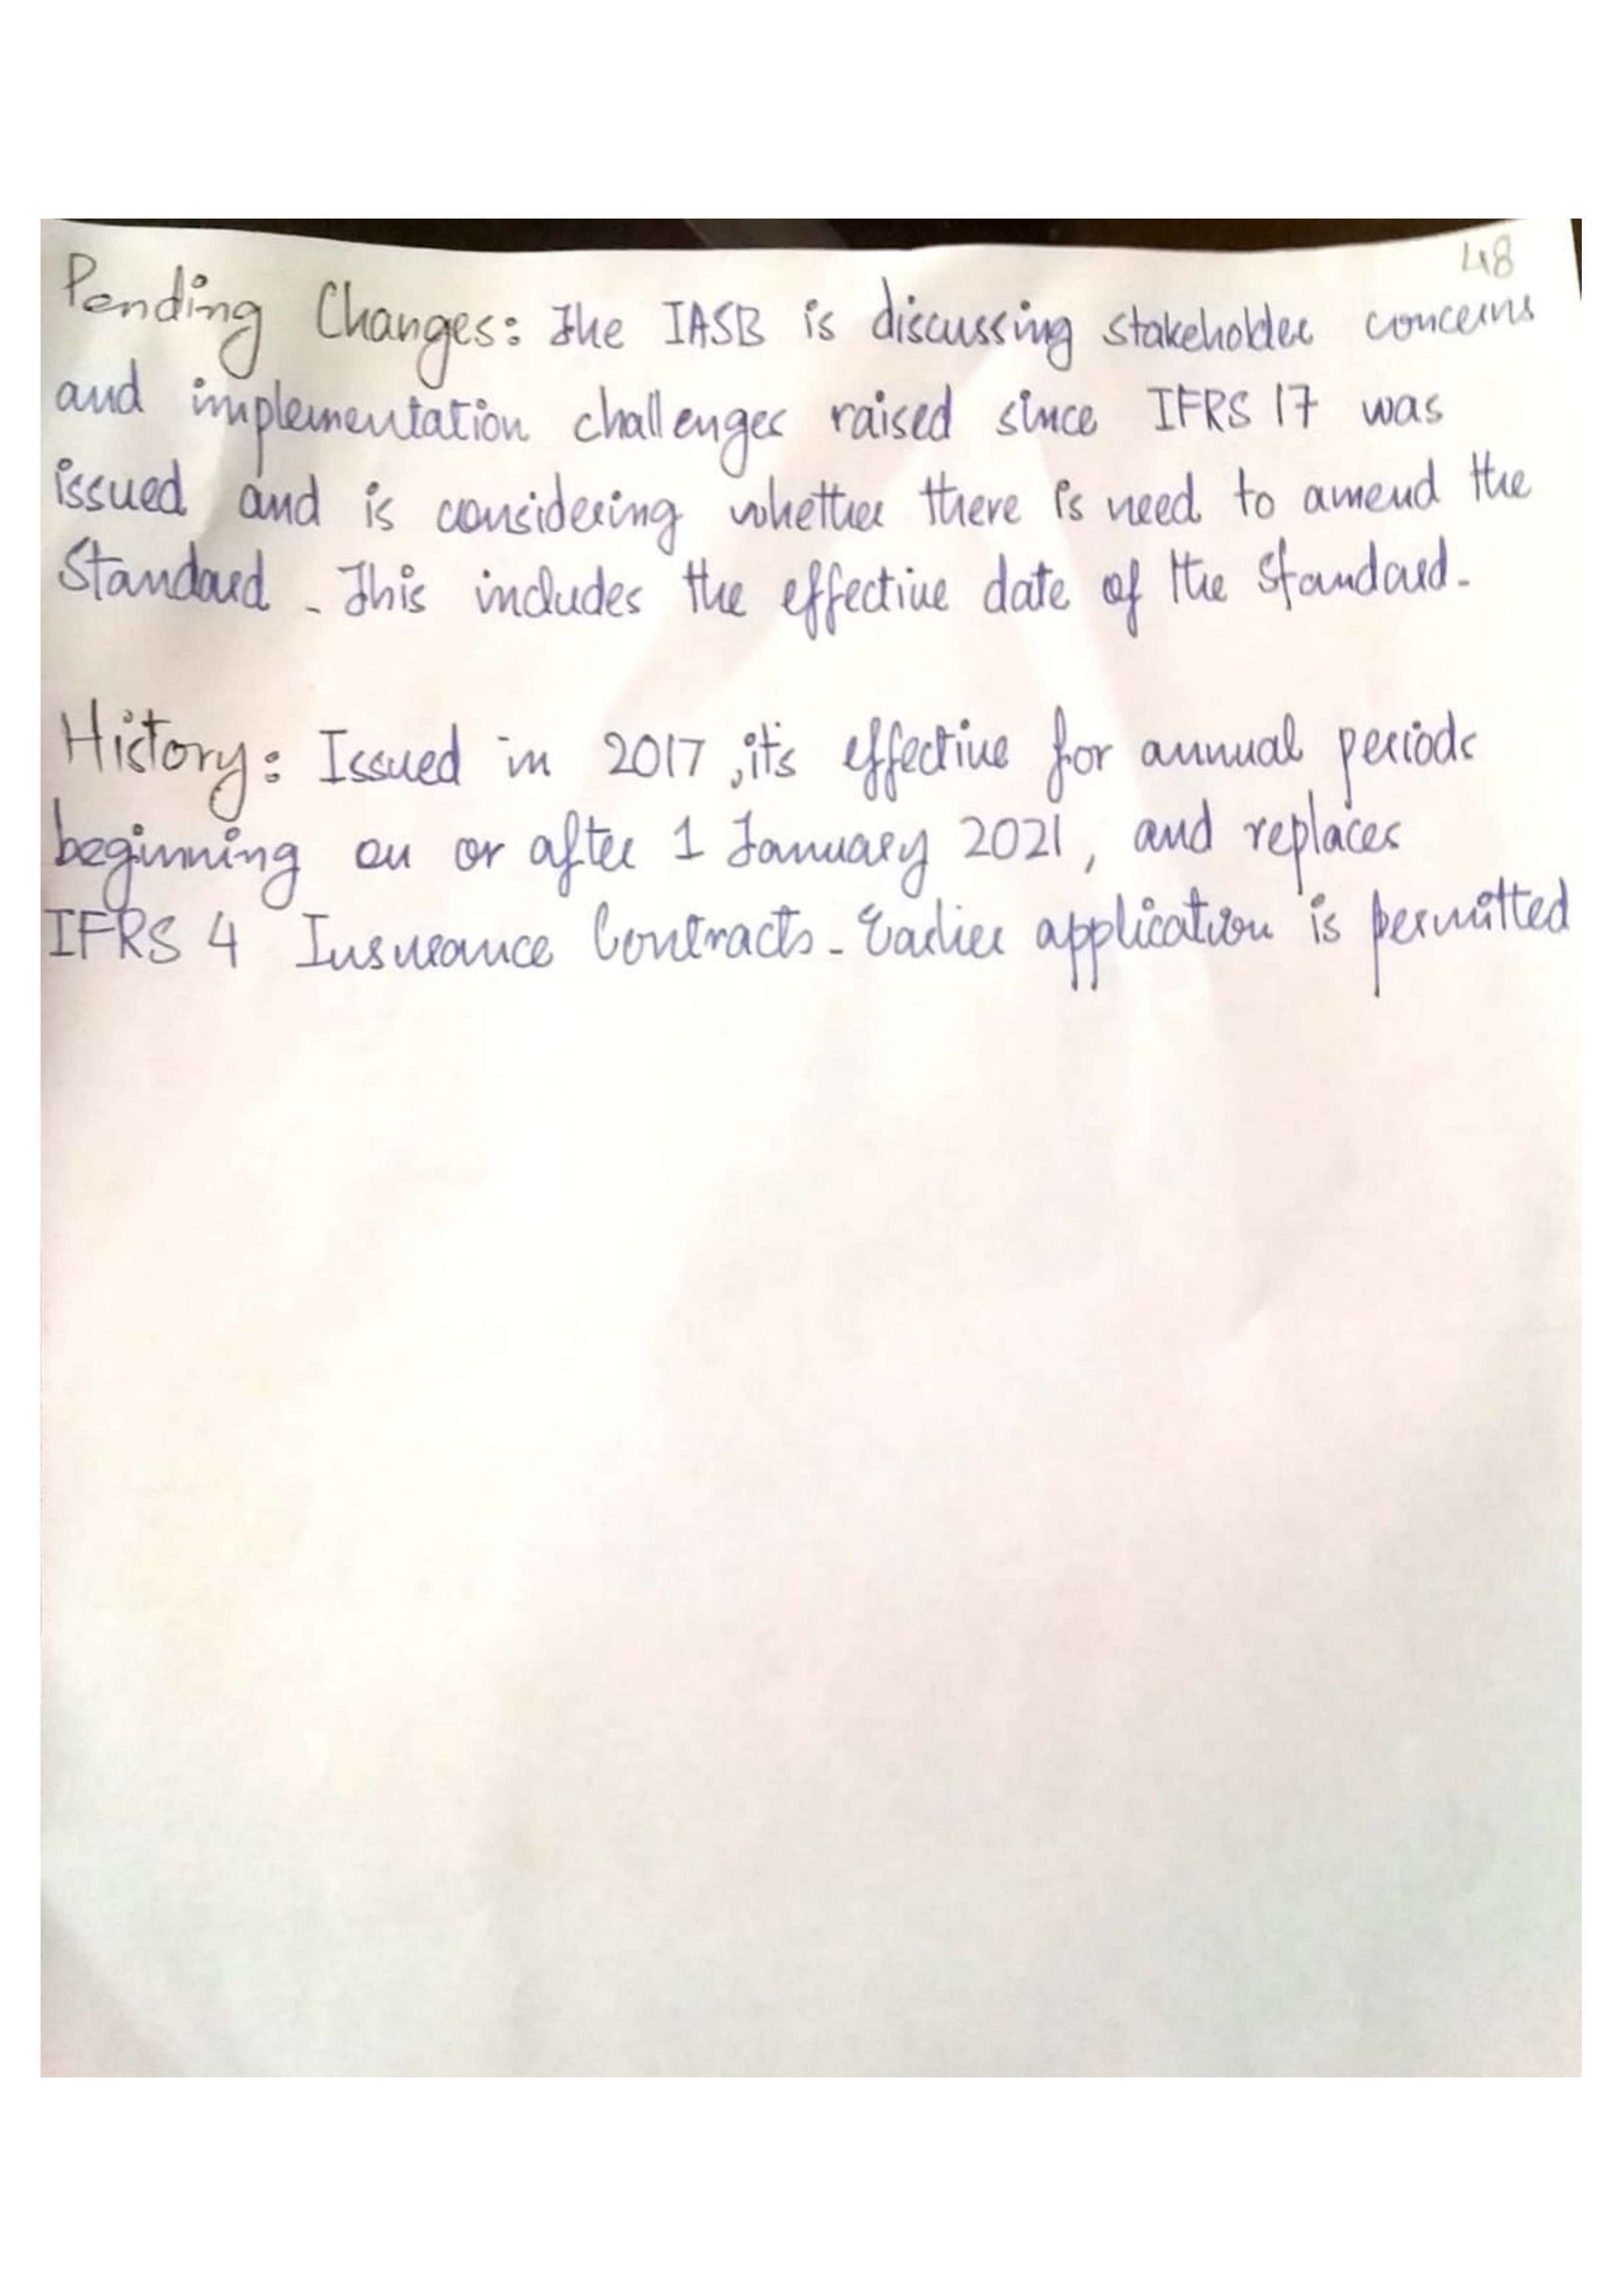 48
Pending Changes: The IASB is discussing stakeholder concerns
and implementation challenges raised since IFRS 17 was
issued and is considering whether there is need to amend the
Standard. This includes the effective date of the Standard.
History: Issued in 2017, it's effective for annual periods
beginning on or after 1 January 2021, and replaces
IFRS 4 Insurance Contracts. Earlier application is permitted